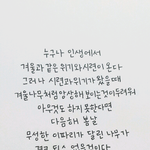 누구나 인생에서
겨울과 같은 위기와 시련이 온다
그러나 시련과 위기가 왔을때
겨울나무처럼 앙상해 보이는것이 두려워
아무것도 하지 못한다면
다음해 봄날
무성한 이파리가 달린 나무가
결코 될수 없을것이다